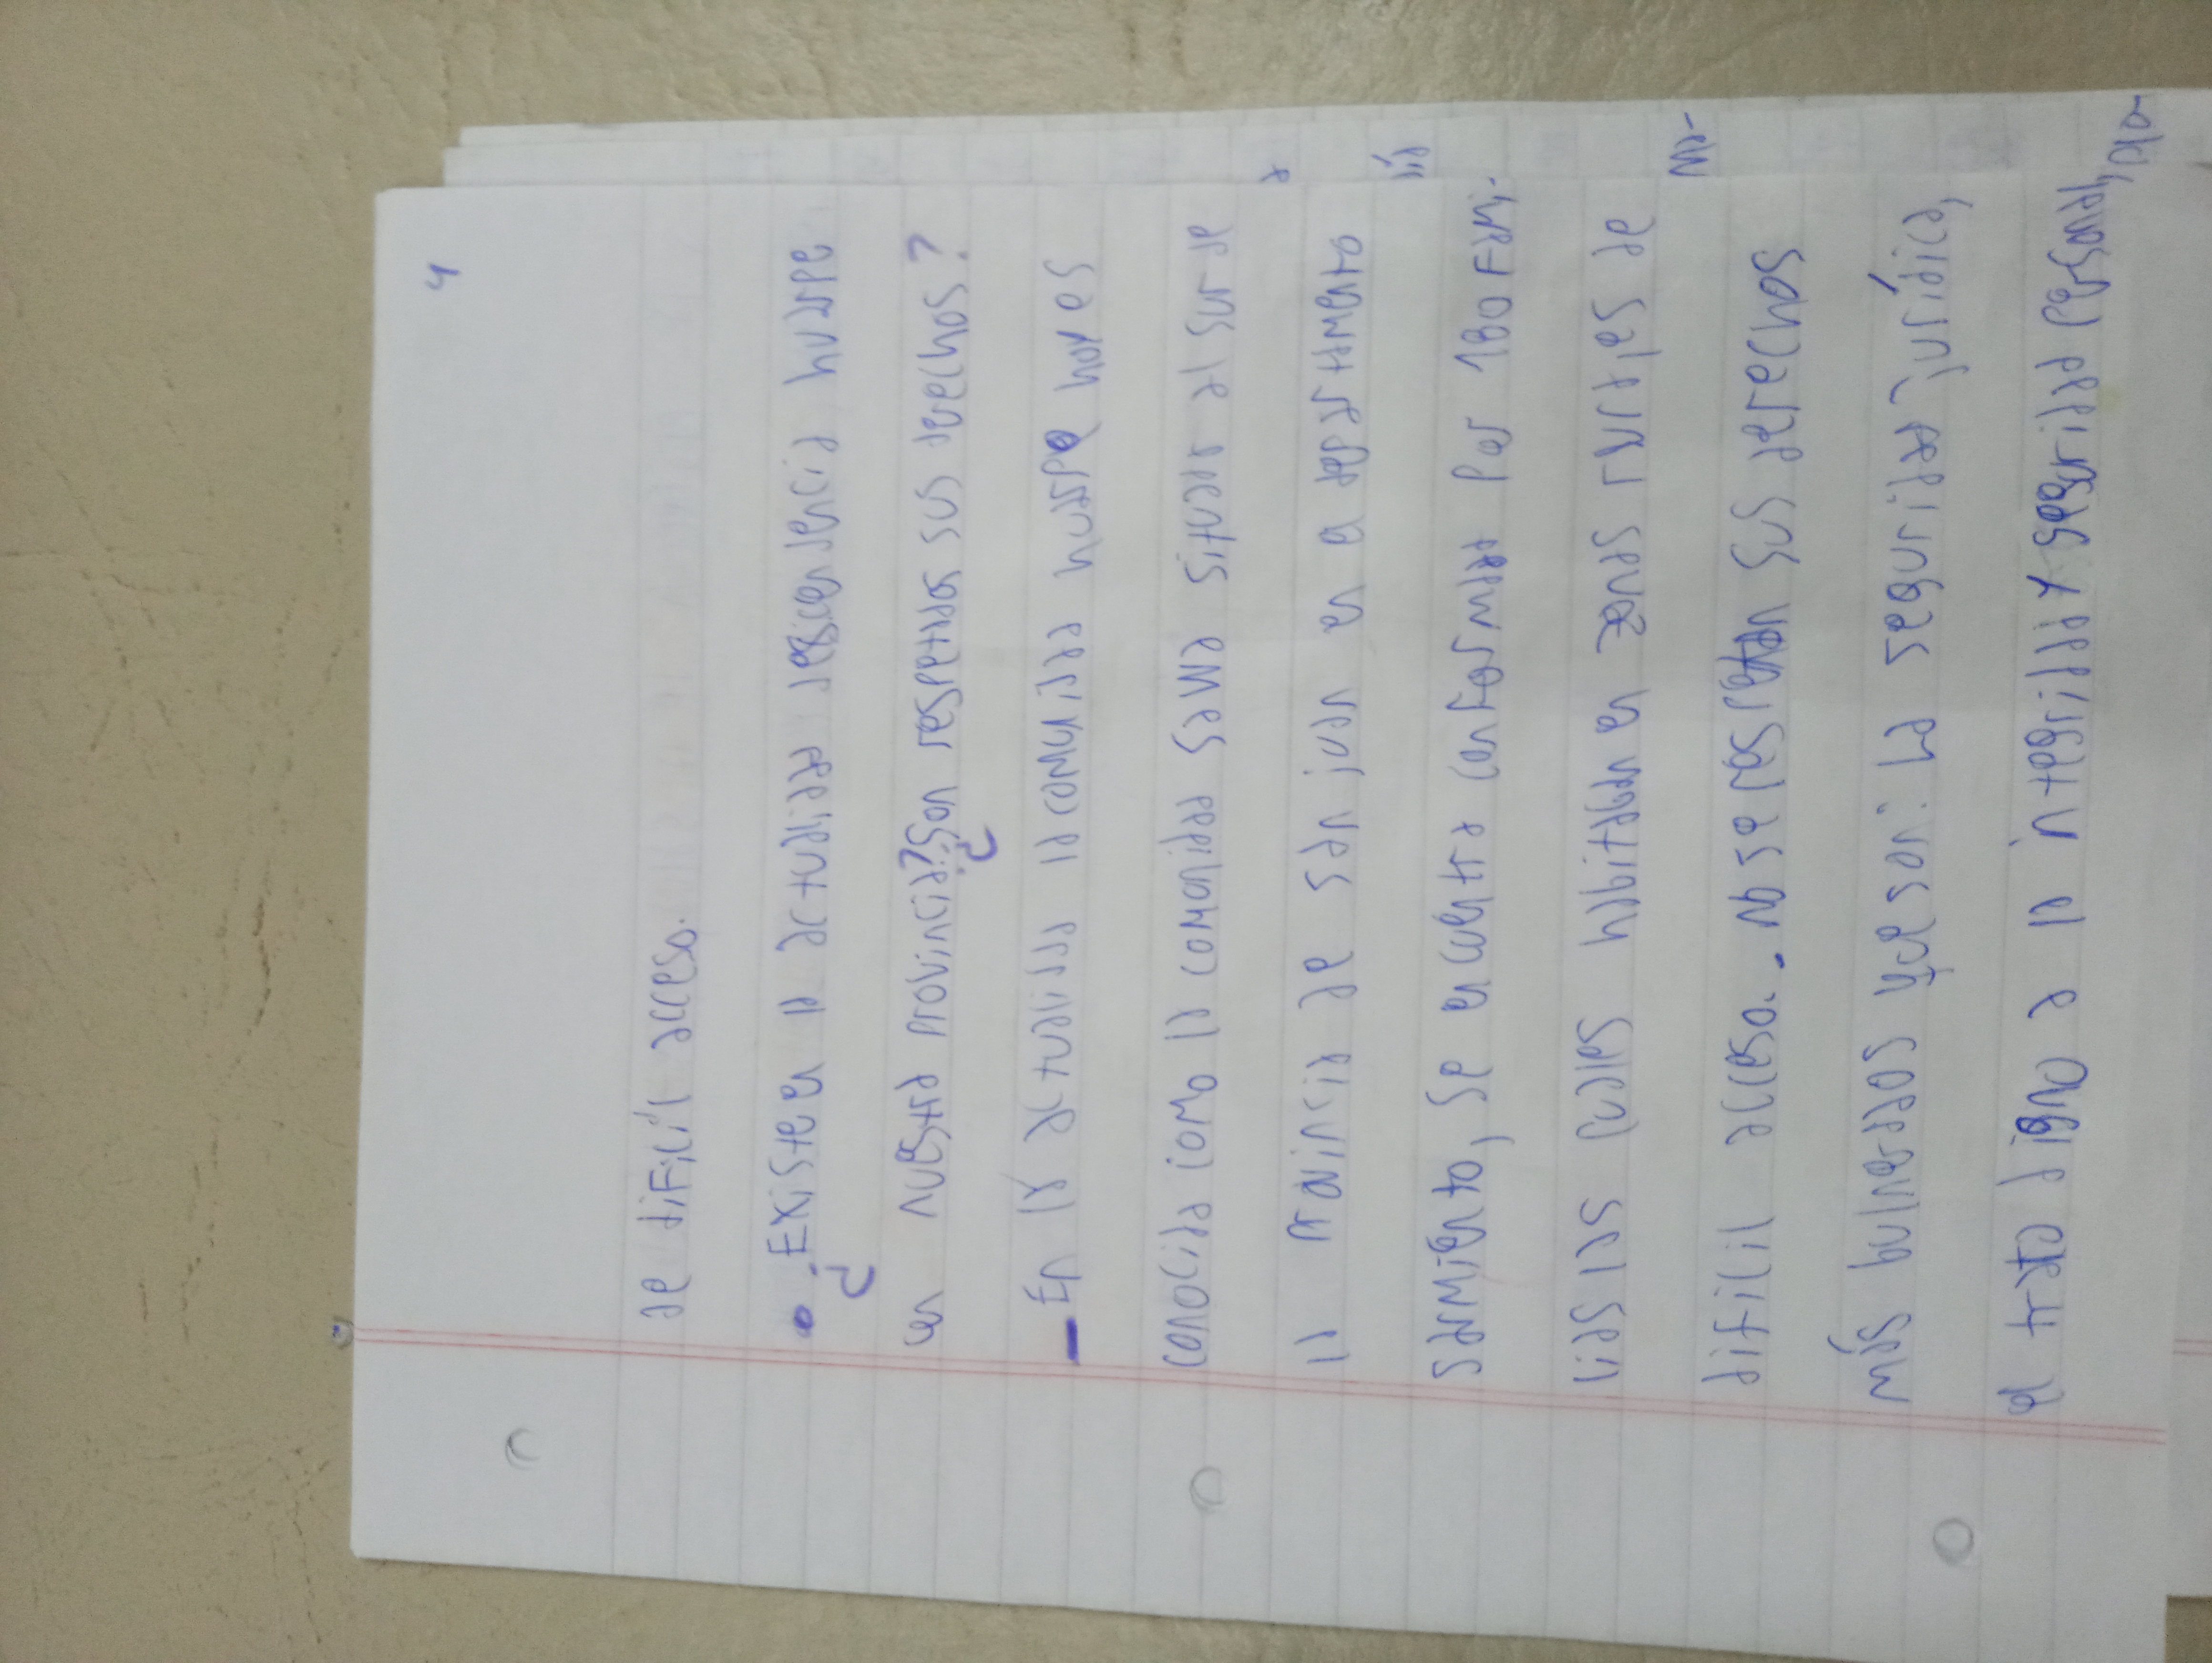 4
de dificíl acceso.
• ¿Existe en la actulidad descendencia huarpe
en nuestra provincia? ¿Son respetados sus derechos?
- En la actualidad la comunidad huarpe hoy es
conocida como la comonidad sawe situada al sur de
la provincia de san juan en en departamento
sarmiento, se encuentra conformada por 180 Fami-
lias las cuales habitan en zonas rurales de
dificil acceso. - no se respetan sus derechos
más bulnerados que son: la seguridad jurídica,
el trato digno e la integrilad y seguridad personal,